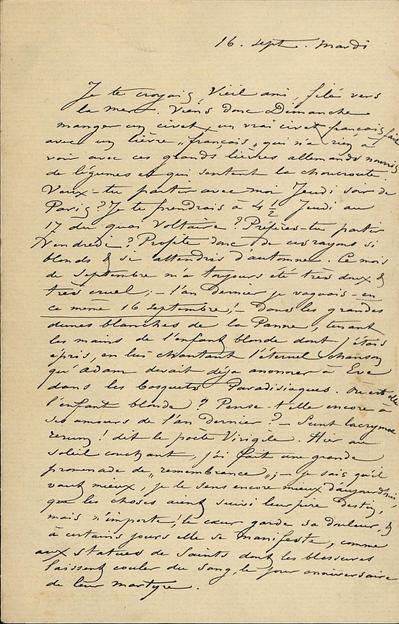 16. Sept. Mardi
Je te croyais, Vieil ami, filé vers
la mer. Viens donc Dimanche
manger un civet, un vrai civet français, fait
avec un lièvre "français" qui n'a rien à
voir avec ces grands lièvres allemands nourris
de légumes et qui sentent la choucroute.
Veux-tu partir avec moi Jeudi soir de
Paris? Je te prendrais à 4 1/2 Jeudi au
17 du quai Voltaire? Préfères-tu partir
Vendredi? Profite donc de ces rayons si
blonds & si attendris d'automne. Ce mois
de Septembre m'a toujours été très doux &
très cruel; – l'an dernier je voguais – en
ce même 16 septembre! – Dans les grandes
dunes blanches de La Panne, tenant
les mains de l'enfant blonde dont j'étais
épris, en lui chantant l'éternel chanson
qu'Adam devait déjà annoner à Eve
dans les bosquets Paradisiaques. Où est-elle
l'enfant blonde? Pense-t'elle encore à
ses amours de l'an dernier? – Sunt lacrymae
rerum! dit le poète Virgile. Hier au
soleil couchant, j'ai fait une grande
promenade de "remembrance"; – je sais qu'il
vaut mieux, je le sens encore mieux d'aujourd'hui
que les choses aient suivi leur pure Destin,
mais n'importe, le cœur garde sa douleur, &
à certains jours elle se manifeste, comme
aux statues de Saints dont les blessures
laissent couler du sang, le jour anniversaire
de leur martyre.